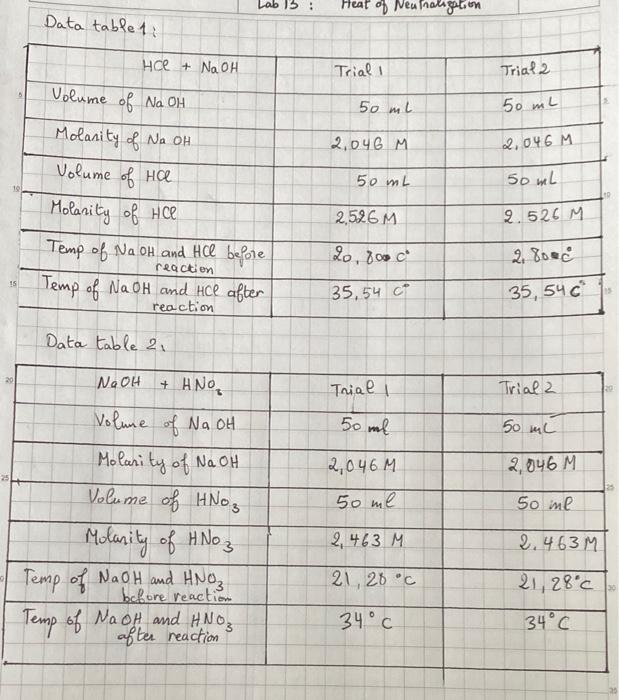 Lab 13 : Heat of Neutralization
Data table 1:
HCl + NaOH Trial 1 Trial 2
Volume of NaOH 50 mL 50 mL
Molarity of NaOH 2,046 M 2,046 M
Volume of HCl 50 mL 50 mL
Molarity of HCl 2,526 M 2.526 M
Temp of NaOH and HCl before
reaction
20,800 C° 2,80 °C
Temp of NaOH and HCl after
reaction
35,54 C° 35,54 C°
Data table 2:
NaOH + HNO3 Trial 1 Trial 2
Volume of NaOH 50 ml 50 mL
Molarity of NaOH 2,046 M 2,046 M
Volume of HNO3 50 ml 50 ml
Molarity of HNO3 2,463 M 2.463 M
Temp of NaOH and HNO3
before reaction
21,28 °C 21,28°C
Temp of NaOH and HNO3
after reaction
34°C 34°C